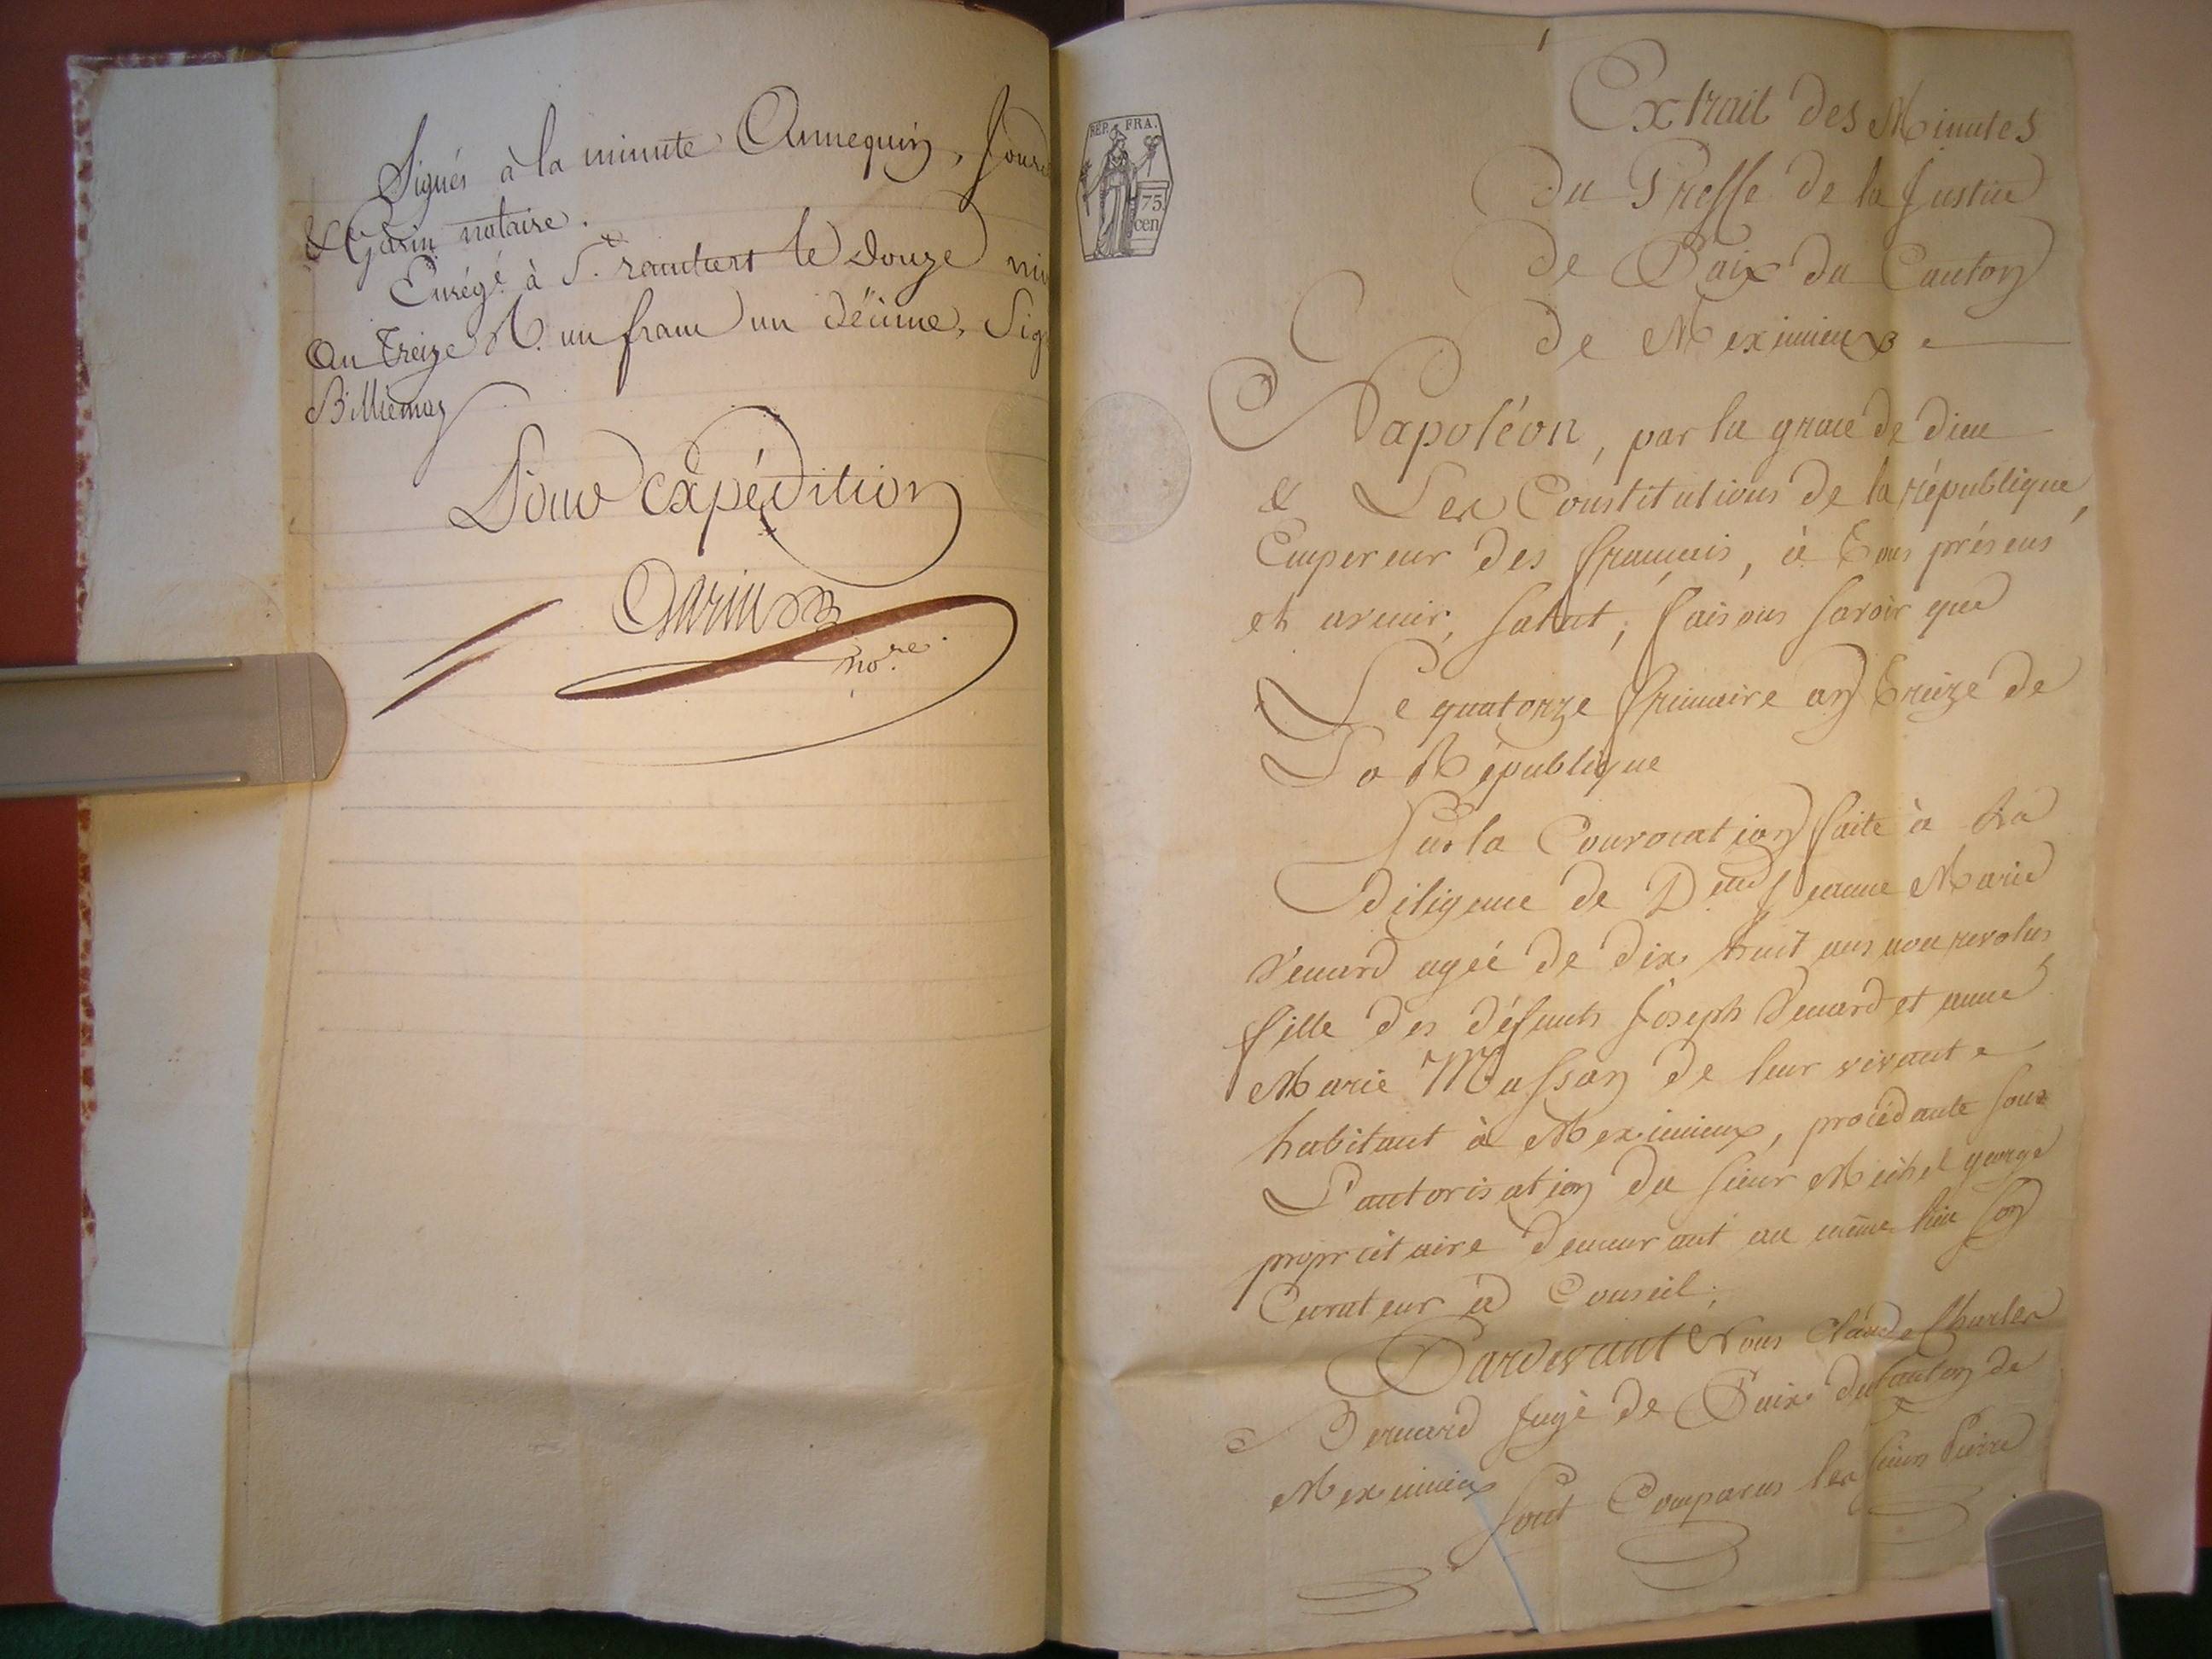 Signés à la minute Annequin,
& Garin notaire.
Enrégé. à St. rambert le douze
an treize R. un franc un décime, Sig
Billiemaz
Pour expédition
Garin
nore.
REP. FRA.
75
cen
Extrait des Minutes
du Greffe de la Justice
de Paix du Canton
de Meximieux
Napoléon, par la grace de dieu
& Les Constitutions de la république,
Empereur des français, à Tous présens
et avenir, Salut; faisons savoir que
Le quatorze frimaire an treize de
La République
Sur la Convocation faite à La
diligence de Delle Jeanne Marie
agée de dix huit ans non revolus
fille des défunts Joseph et anne
Marie Masson de leur vivant
habitant à Meximieux, procédante sous
L'autorisation du sieur Michel george
propriétaire demeurant au même lieu son
Curateur à Conseil;
Pardevant Nous Claude Charles
Bernard Juge de Paix du Canton de
Meximieux
Sont Comparus les sieurs Pierre